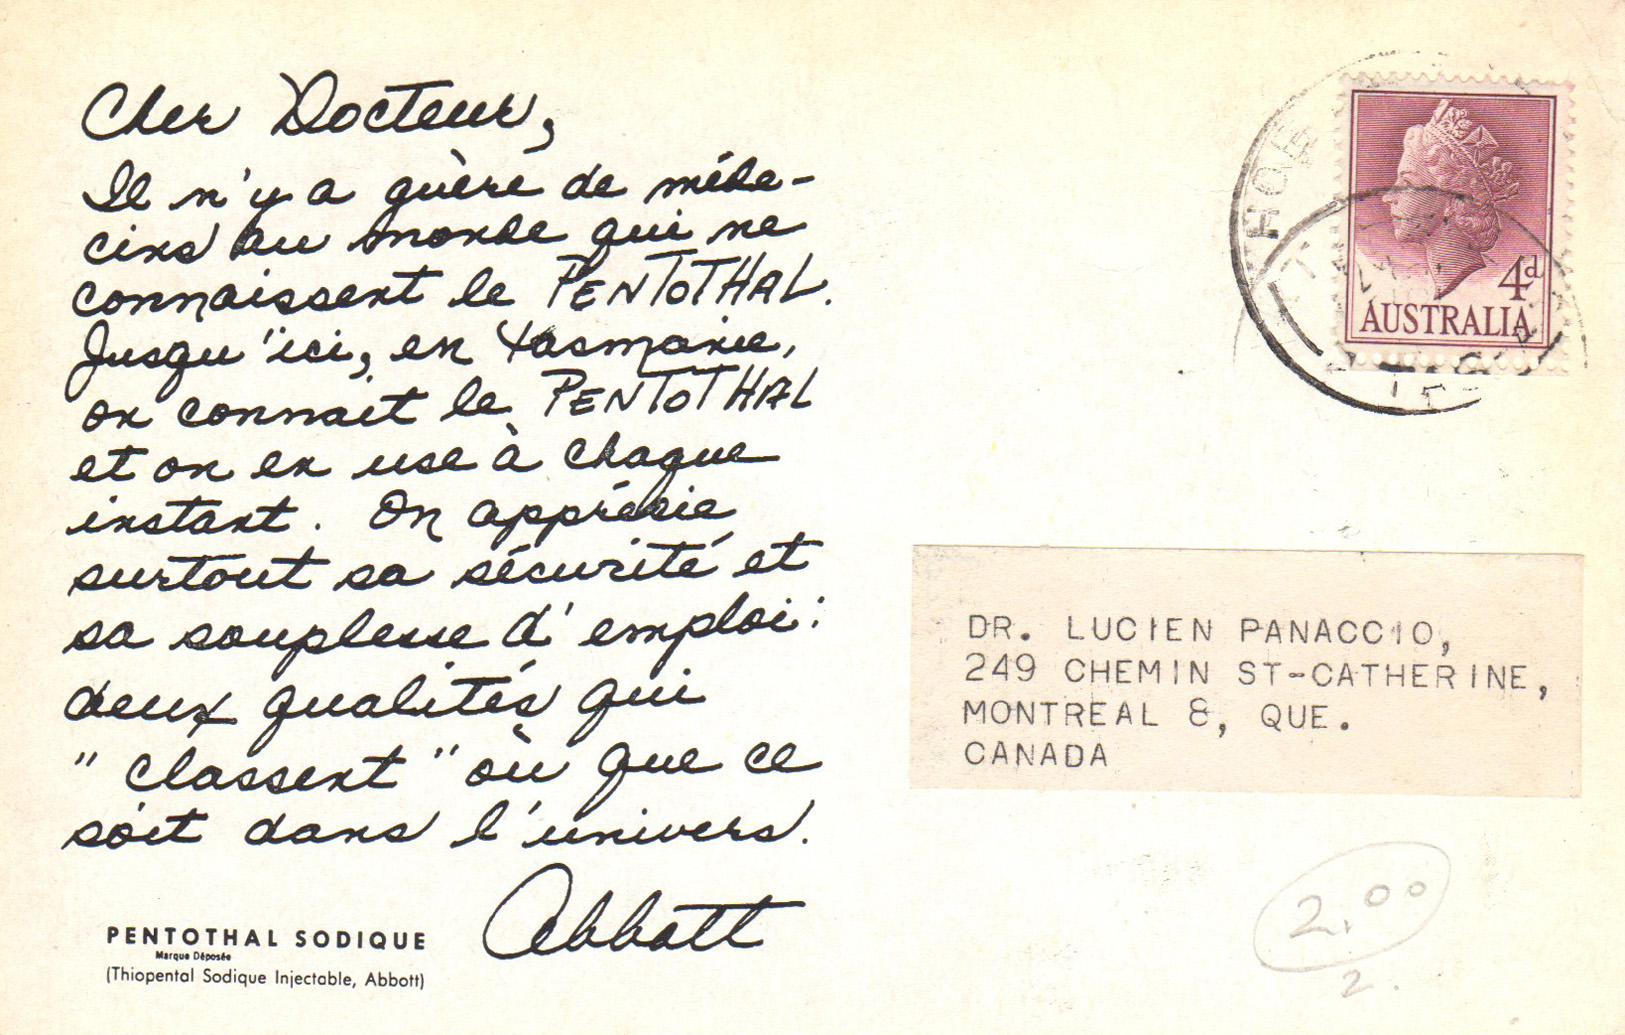 Cher Docteur,
Il n'y a guère de méde-
cins au monde qui ne
connaissent le PENTOTHAL.
Jusqu'ici, en Tasmanie,
on connait le PENTOTHAL
et on en use à chaque
instant. On apprécie
surtout sa sécurité et
sa souplesse d'emploi:
deux qualités qui
"classent" où que ce
soit dans l'univers.
Abbott
PENTOTHAL SODIQUE
Marque Déposée
(Thiopental Sodique Injectable, Abbott)
4d
AUSTRALIA
DR. LUCIEN PANACCIO,
249 CHEMIN ST-CATHERINE,
MONTREAL 8, QUE.
CANADA
2.00
2.